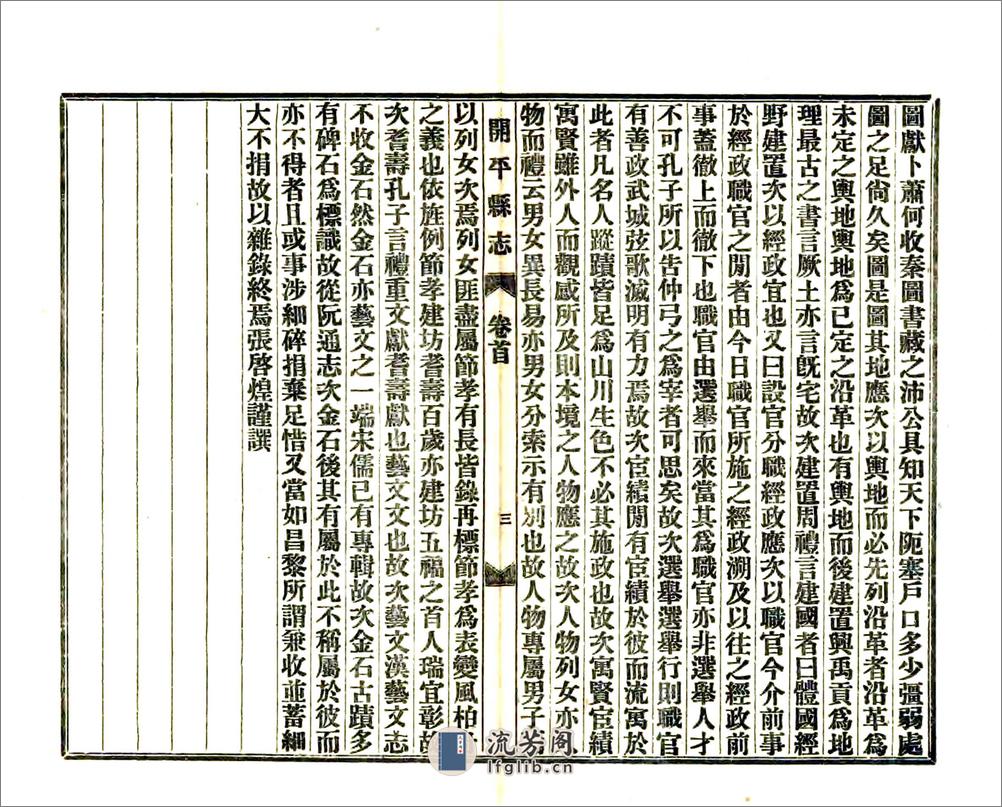 圖獻卜蕭何收秦圖書藏之沛公具知天下阨塞戶口多少彊弱處
圖之足尙久矣圖是圖其地應次以輿地而必先列沿革者沿革爲
未定之輿地輿地爲已定之沿革也有輿地而後建置興禹貢爲地
理最古之書言厥土亦言旣宅故次建置周禮言建國者曰體國經
野建置次以經政宜也又曰設官分職經政應次以職官今介前事
於經政職官之閒者由今日職官所施之經政溯及以往之經政前
事蓋徹上而徹下也職官由選舉而來當其爲職官亦非選舉人才
不可孔子所以告仲弓之爲宰者可思矣故次選舉選舉行則職官
有善政武城弦歌滅明有力焉故次宦績閒有宦績於彼而流寓於
此者凡名人蹤蹟皆足爲山川生色不必其施政也故次寓賢宦績
寓賢雖外人而觀感所及則本境之人物應之故次人物列女亦人
物而禮云男女異長易亦男女分索示有別也故人物專屬男子
開平縣志
卷首
三
以列女次焉列女匪盡屬節孝有長皆錄再標節孝爲表變風柏
之義也依旌例節孝建坊耆壽百歲亦建坊五福之首人瑞宜彰故
次耆壽孔子言禮重文獻耆壽獻也藝文文也故次藝文漢藝文志
不收金石然金石亦藝文之一端宋儒已有專輯故次金石古蹟多
有碑石爲標識故從阮通志次金石後其有屬於此不稱屬於彼而
亦不得者且或事涉細碎捐棄足惜又當如昌黎所謂兼收並蓄細
大不捐故以雜錄終焉張啓煌謹譔
流芳阁
lfglib.cn